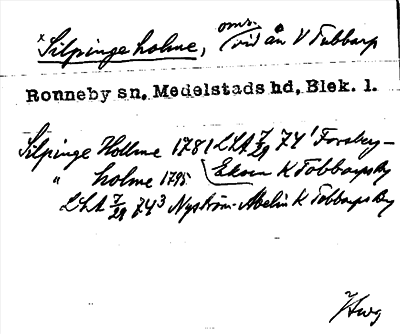 x Silpinge holme, omr. vid ån V Tubbarp
Ronneby sn, Medelstads hd, Blek. l.
Silpinge Hollme 1781 LSA 7/29 74¹ Forsberg –
" holme 1795 Ekorn K Tobbarps By
LSA 7/29 74³ Nyström - Abelin K Tobbarps By